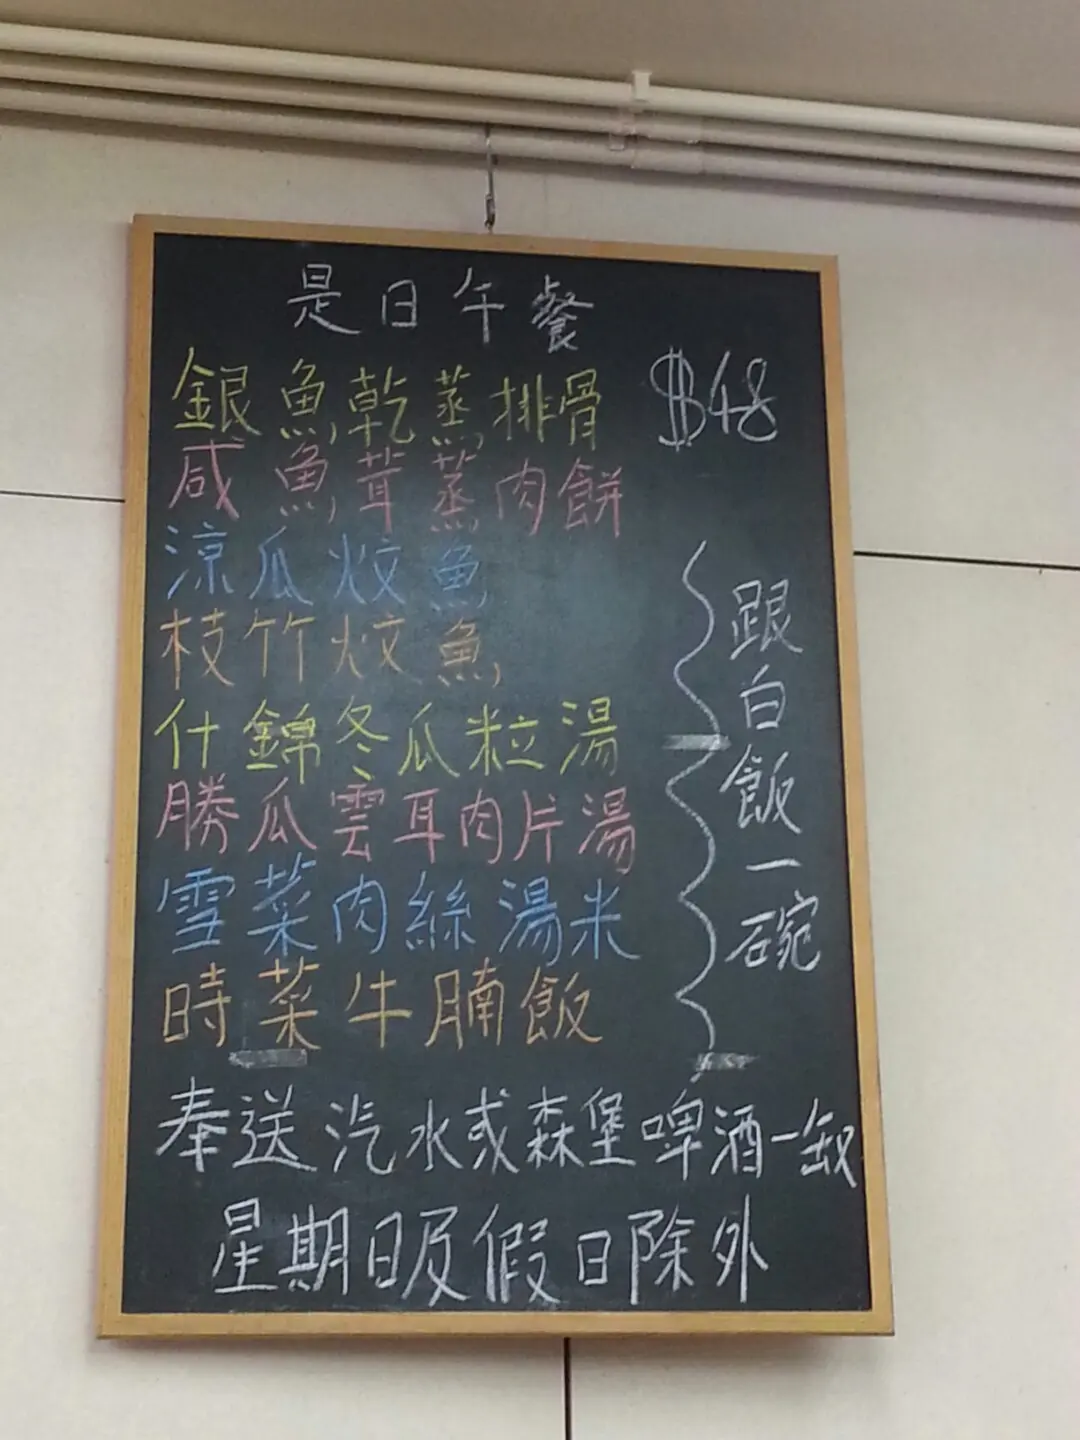 是日午餐
銀魚乾蒸排骨 $48
咸魚茸蒸肉餅
涼瓜炆魚
枝竹炆魚
什錦冬瓜粒湯
勝瓜雲耳肉片湯
雪菜肉絲湯米
時菜牛腩飯
跟白飯一碗
奉送汽水或森堡啤酒一缻
星期日及假日除外